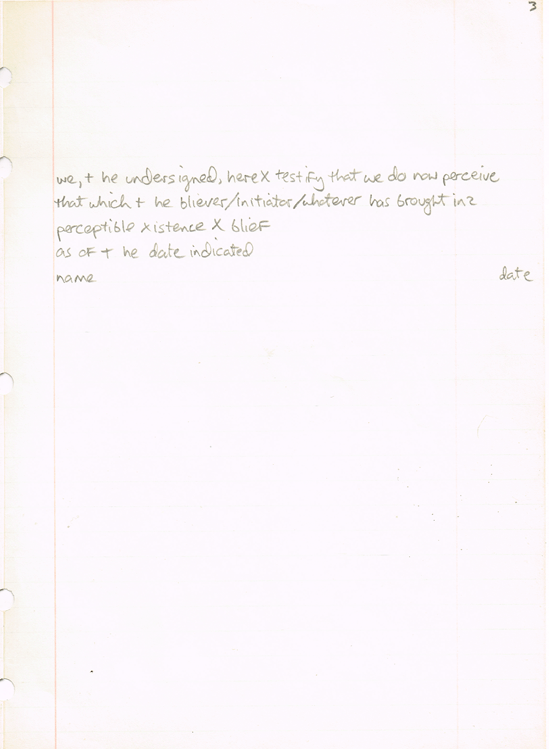 3
we, + he undersigned, here X testify that we do now perceive
that which + he bliever/initiator/whatever has brought in2
perceptible xistence X blief
as of + he date indicated
name date